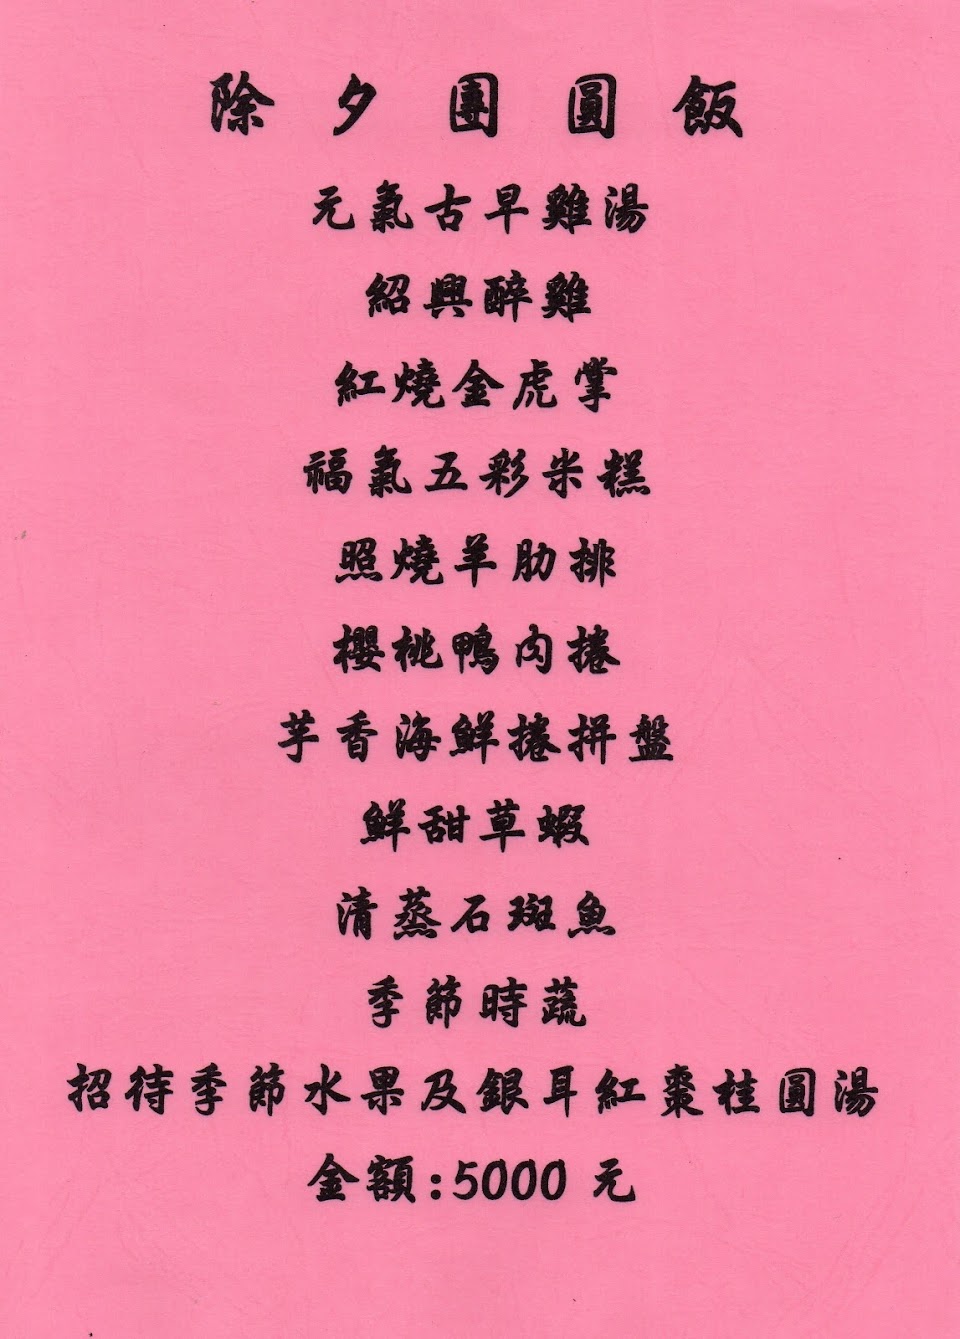 除夕團圓飯
元氣古早雞湯
紹興醉雞
紅燒金虎掌
福氣五彩米糕
照燒羊肋排
櫻桃鴨肉捲
芋香海鮮捲拼盤
鮮甜草蝦
清蒸石斑魚
季節時蔬
招待季節水果及銀耳紅棗桂圓湯
金額:5000 元